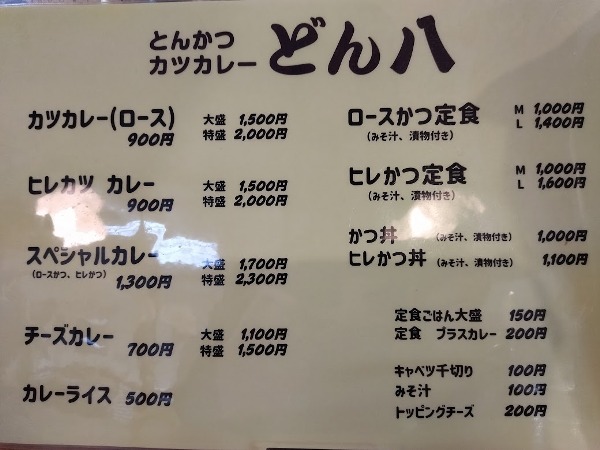 とんかつ
カツカレー どん八
カツカレー(ロース) 大盛 1,500円
900円 特盛 2,000円
ヒレカツ カレー 大盛 1,500円
900円 特盛 2,000円
スペシャルカレー 大盛 1,700円
(ロースかつ、ヒレかつ) 1,300円 特盛 2,300円
チーズカレー 大盛 1,100円
700円 特盛 1,500円
カレーライス 500円
ロースかつ定食 M 1,000円
(みそ汁、漬物付き) L 1,400円
ヒレかつ定食 M 1,000円
(みそ汁、漬物付き) L 1,600円
かつ丼 (みそ汁、漬物付き) 1,000円
ヒレかつ丼 (みそ汁、漬物付き) 1,100円
定食ごはん大盛 150円
定食 プラスカレー 200円
キャベツ千切り 100円
みそ汁 100円
トッピングチーズ 200円